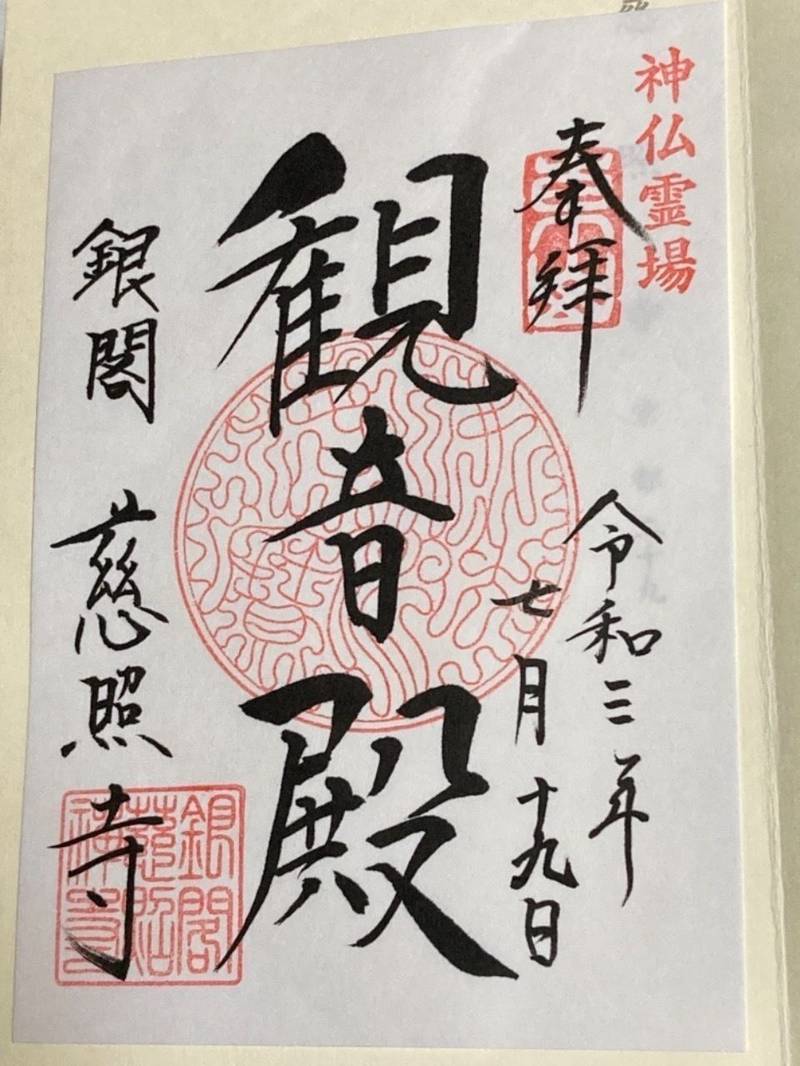 神仏霊場
奉拝
令和三年
七月十九日
観音殿
銀閣 慈照寺
銀閣
慈照
禅寺